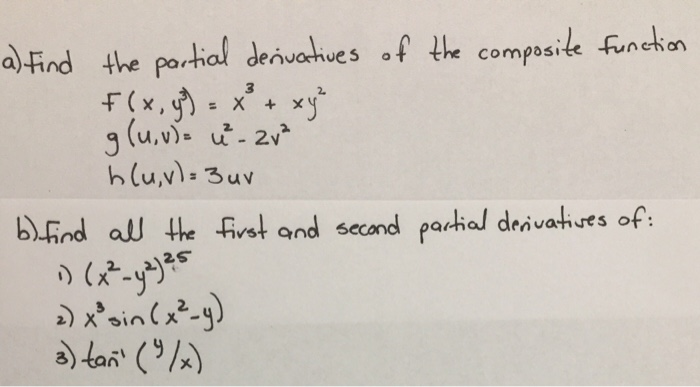 a) Find the partial derivatives of the composite function
f(x, y³) = x³ + xy²
g(u,v) = u² - 2v²
h(u,v) = 3uv
b) find all the first and second partial derivatives of:
1) (x²-y²)²⁵
2) x³ sin(x²-y)
3) tan⁻¹ (y/x)